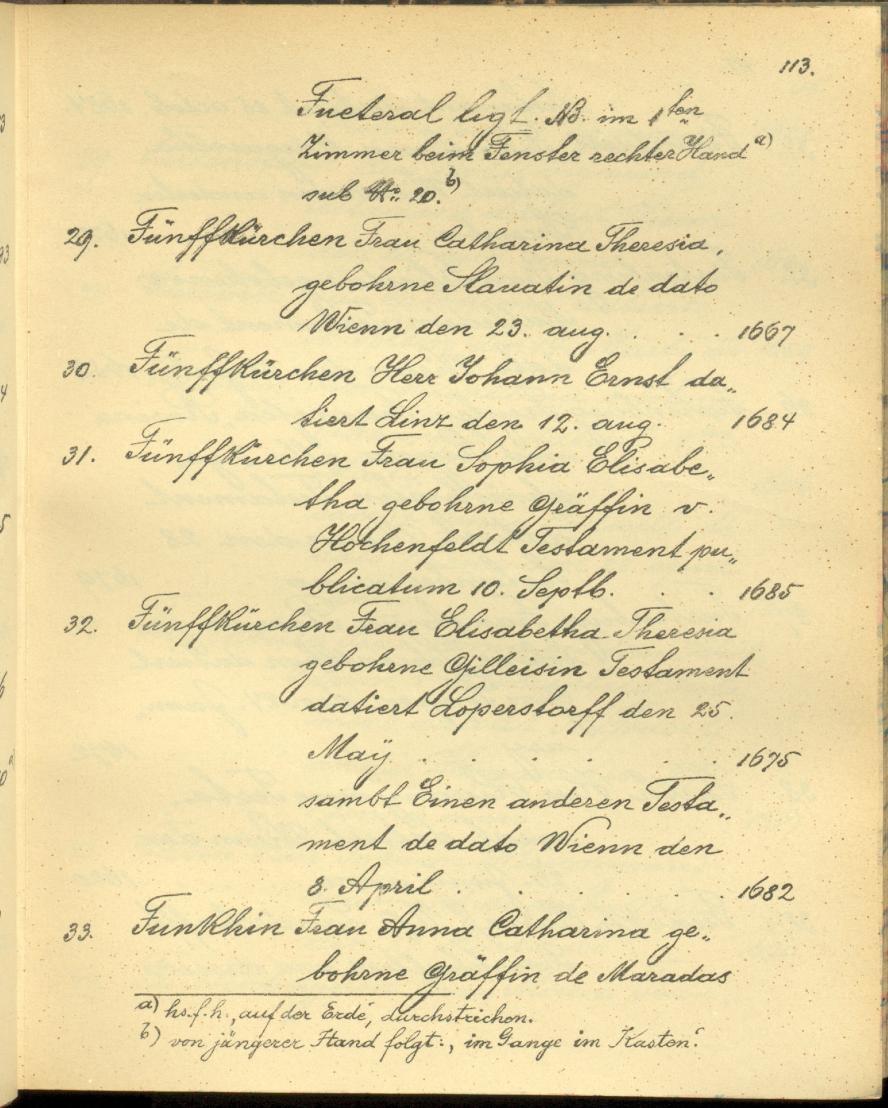 113.
Fueteral ligt. NB. im 1ten
Zimmer beim Fenster rechter Hand a)
sub No: 20. b)
29. Fünffkürchen Frau Catharina Theresia,
gebohrne Slauatin de dato
Wienn den 23. aug. . . . 1667
30. Fünffkürchen Herr Johann Ernst da„
tiert Linz den 12. aug. 1684
31. Fünffkürchen Frau Sophia Elisabe„
tha gebohrne Gräffin v.
Hochenfeldt Testament pu„
blicatum 10. Septb. . . 1685
32. Fünffkürchen Frau Elisabetha Theresia
gebohrne Gilleisin Testament
datiert Loperstorff den 25.
Maÿ . . . . . . 1675
sambt Einen anderen Testa„
ment de dato Wienn den
8. April . . . . . 1682
33. Funkhin Frau Anna Catharina ge„
bohrne Gräffin de Maradas
a) hs. f. h. „auf der Erde, durchstrichen.
b) von jüngerer Hand folgt: „im Gange im Kasten“.